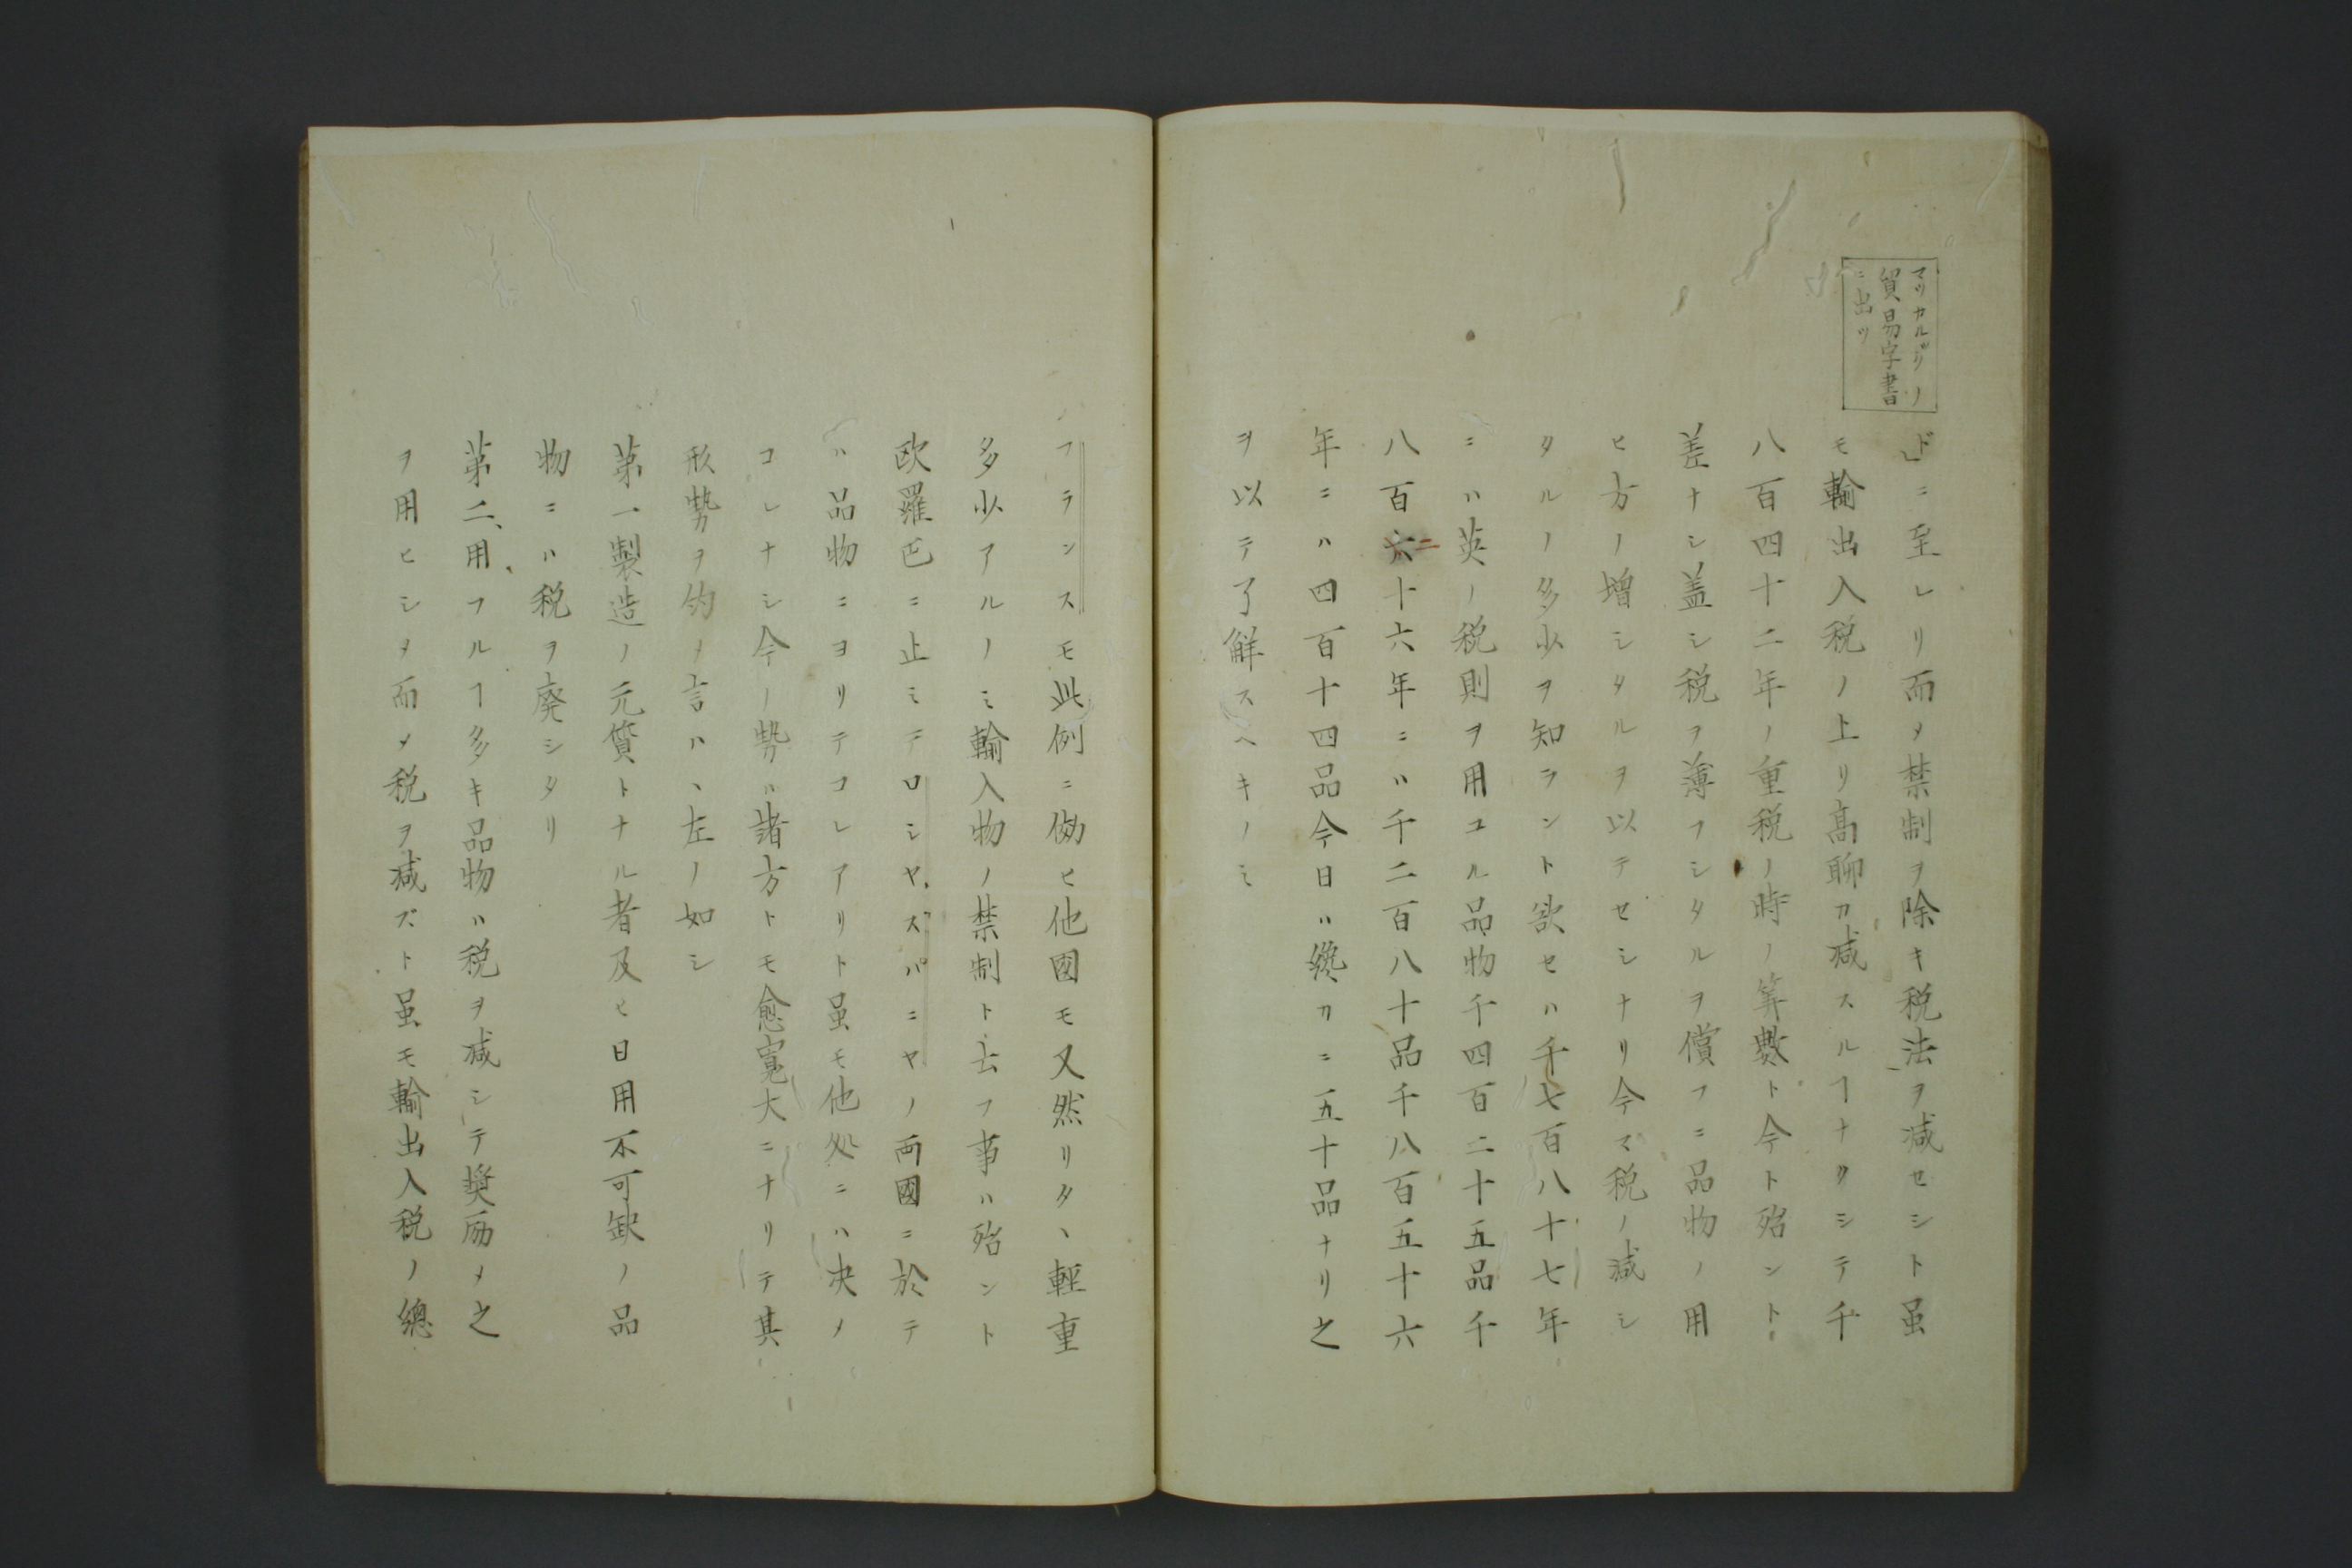 マツカルヅクノ
貿易字書
ニ出ツ
ド」ニ至レリ而メ禁制ヲ除キ税法ヲ減セシト虽
モ輸出入税ノ上リ髙聊カ減スルヿナクシテ千
八百四十二年ノ重税ノ時ノ算數ト今ト殆ント
差ナシ盖シ税ヲ薄フシタルヲ償フニ品物ノ用
ヒ方ノ増シタルヲ以テセシナリ今マ税ノ減シ
タルノ多少ヲ知ラント欲セハ千七百八十七年
ニハ英ノ税則ヲ用ユル品物千四百二十五品千
八百二十六年ニハ千二百八十品千八百五十六
年ニハ四百十四品今日ハ纔カニ五十品ナリ之
ヲ以テ了解スヘキノミ
フランスモ此例ニ傚ヒ他國モ又然リタヽ輕重
多少アルノミ輸入物ノ禁制ト去フ事ハ殆ント
欧羅巴ニ止ミテロシヤ、ズパニヤノ両國ニ於テ
ハ品物ニヨリテコレアリト虽モ他処ニハ决ノ
コレナシ今ノ勢ハ諸方トモ愈寛大ニナリテ其
形勢ヲ約メ言ハヽ左ノ如シ
第一製造ノ元質トナル者及ヒ日用不可缺ノ品
物ニハ税ヲ廃シタリ
第二、用フルヿ多キ品物ハ税ヲ減シテ奨励メ之
ヲ用ヒシメ而メ税ヲ減ズト虽モ輸出入税ノ總